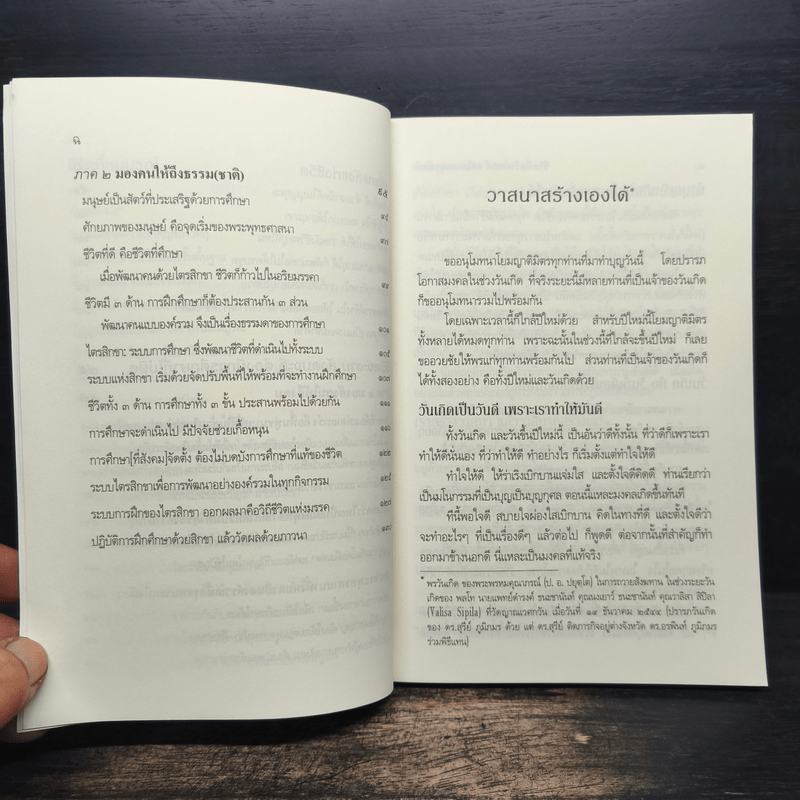 ฉ
ภาค ๒ มองคนให้ถึงธรรม(ชาติ)
๕๕
มนุษย์เป็นสัตว์ที่ประเสริฐด้วยการศึกษา
ศักยภาพของมนุษย์ คือจุดเริ่มของพระพุทธศาสนา
ชีวิตที่ดี คือชีวิตที่ศึกษา
เมื่อพัฒนาคนด้วยไตรสิกขา ชีวิตก็ก้าวไปในอริยมรรคา
ชีวิตมี ๓ ด้าน การฝึกศึกษาก็ต้องประสานกัน ๓ ส่วน
พัฒนาคนแบบองค์รวม จึงเป็นเรื่องธรรมดาของการศึกษา
ไตรสิกขา: ระบบการศึกษา ซึ่งพัฒนาชีวิตที่ดำเนินไปทั้งระบบ
ระบบแห่งสิกขา เริ่มด้วยจัดปรับพื้นที่ให้พร้อมที่จะทำงานฝึกศึกษา
ชีวิตทั้ง ๓ ด้าน การศึกษาทั้ง ๓ ขั้น ประสานพร้อมไปด้วยกัน
การศึกษาจะดำเนินไป มีปัจจัยช่วยเกื้อหนุน
การศึกษา[ที่สังคม]จัดตั้ง ต้องไม่บดบังการศึกษาที่แท้ของชีวิต
ระบบไตรสิกขาเพื่อการพัฒนาอย่างองค์รวมในทุกกิจกรรม
ระบบการฝึกของไตรสิกขา ออกผลมาคือวิถีชีวิตแห่งมรรค
ปฏิบัติการฝึกศึกษาด้วยสิกขา แล้ววัดผลด้วยภาวนา
วาสนาสร้างเองได้*
ขออนุโมทนาโยมญาติมิตรทุกท่านที่มาทำบุญวันนี้ โดยปรารภ
โอกาสมงคลในช่วงวันเกิด ที่จริงระยะนี้มีหลายท่านที่เป็นเจ้าของวันเกิด
ก็ขออนุโมทนารวมไปพร้อมกัน
โดยเฉพาะเวลานี้ก็ใกล้ปีใหม่ด้วย สำหรับปีใหม่นี้โยมญาติมิตร
ทั้งหลายได้หมดทุกท่าน เพราะฉะนั้นในช่วงนี้ที่ใกล้จะขึ้นปีใหม่ ก็เลย
ขออวยชัยให้พรแก่ทุกท่านพร้อมกันไป ส่วนท่านที่เป็นเจ้าของวันเกิดก็
ได้ทั้งสองอย่าง คือทั้งปีใหม่และวันเกิดด้วย
วันเกิดเป็นวันดี เพราะเราทำให้มันดี
ทั้งวันเกิด และวันขึ้นปีใหม่นี้ เป็นอันว่าดีทั้งนั้น ที่ว่าดีก็เพราะเรา
ทำให้ดีนั่นเอง ที่ว่าทำให้ดี ทำอย่างไร ก็เริ่มตั้งแต่ทำใจให้ดี
ทำใจให้ดี ให้ร่าเริงเบิกบานแจ่มใส และตั้งใจดีคิดดี ท่านเรียกว่า
เป็นมโนกรรมที่เป็นบุญเป็นกุศล ตอนนี้แหละมงคลเกิดขึ้นทันที
ทีนี้พอใจดี สบายใจผ่องใสเบิกบาน คิดในทางที่ดี และตั้งใจดีว่า
จะทำอะไรๆ ที่เป็นเรื่องดีๆ แล้วต่อไป ก็พูดดี ต่อจากนั้นที่สำคัญก็ทำ
ออกมาข้างนอกดี นี่แหละเป็นมงคลที่แท้จริง
* พรวันเกิด ของพระพรหมคุณาภรณ์ (ป. อ. ปยุตฺโต) ในการถวายสังฆทาน ในช่วงระยะวัน
เกิดของ พลโท นายแพทย์ดำรงค์ ธนะชานันท์ คุณนงเยาว์ ธนะชานันท์ คุณวาลิสา สิปิลา
(Valisa Sipila) ที่วัดญาณเวศกวัน เมื่อวันที่ ๑๙ ธันวาคม ๒๕๔๙ (ปรารภวันเกิด
ของ ดร.สุรีย์ ภูมิภมร ด้วย แต่ ดร.สุรีย์ ติดภารกิจอยู่ต่างจังหวัด ดร.อรพินท์ ภูมิภมร
ร่วมพิธีแทน)